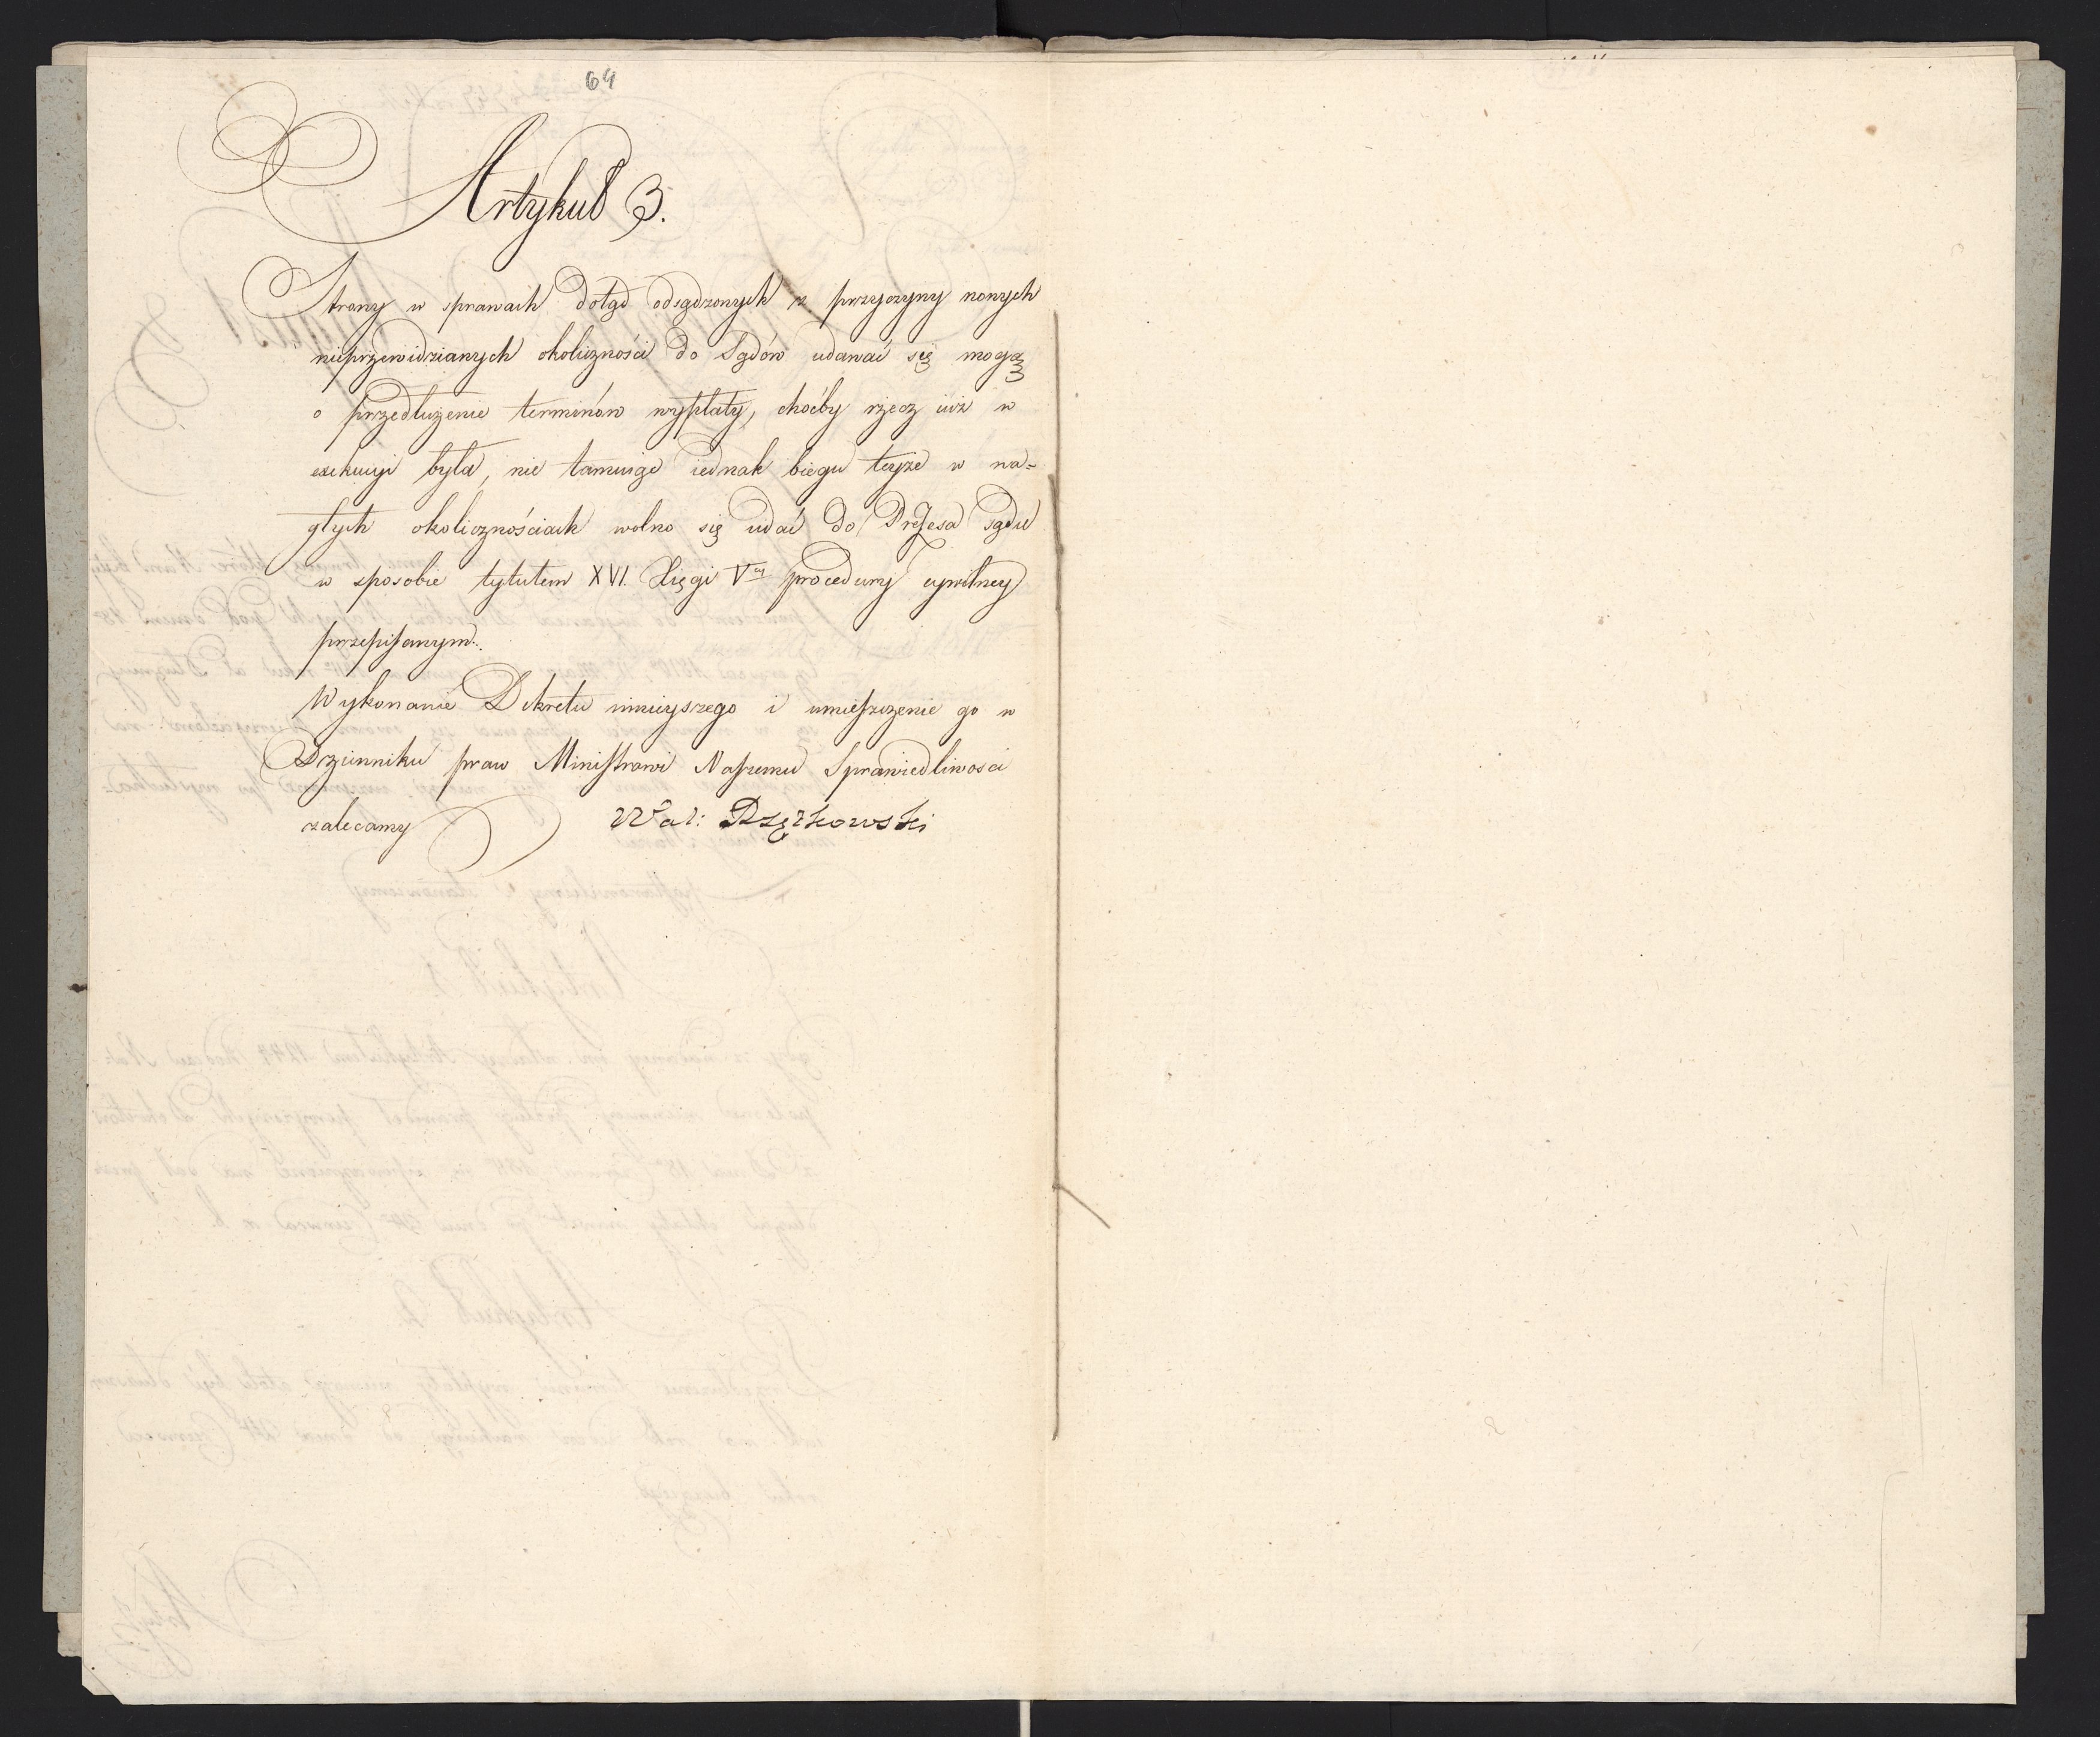 64
Artykuł 3.
Strony w sprawach dotąd odsądzonych z przyczyny nowych
nieprzewidzianych okoliczności do Sądów udawać się mogą
o przedłużenie terminów wypłaty, choćby rzecz iuż w
exekucyi była, nie tamuiąc iednak biegu teyże w na=
głych okolicznościach wolno się udać do Prezesa Sądu
w sposobie tytułem XVI. Xięgi V procedury cywilney
przepisanym.
Wykonanie Dekretu ninieyszego i umieszczenie go w
Dzienniku praw Ministrowi Naszemu Sprawiedliwości
zalecamy Wal: